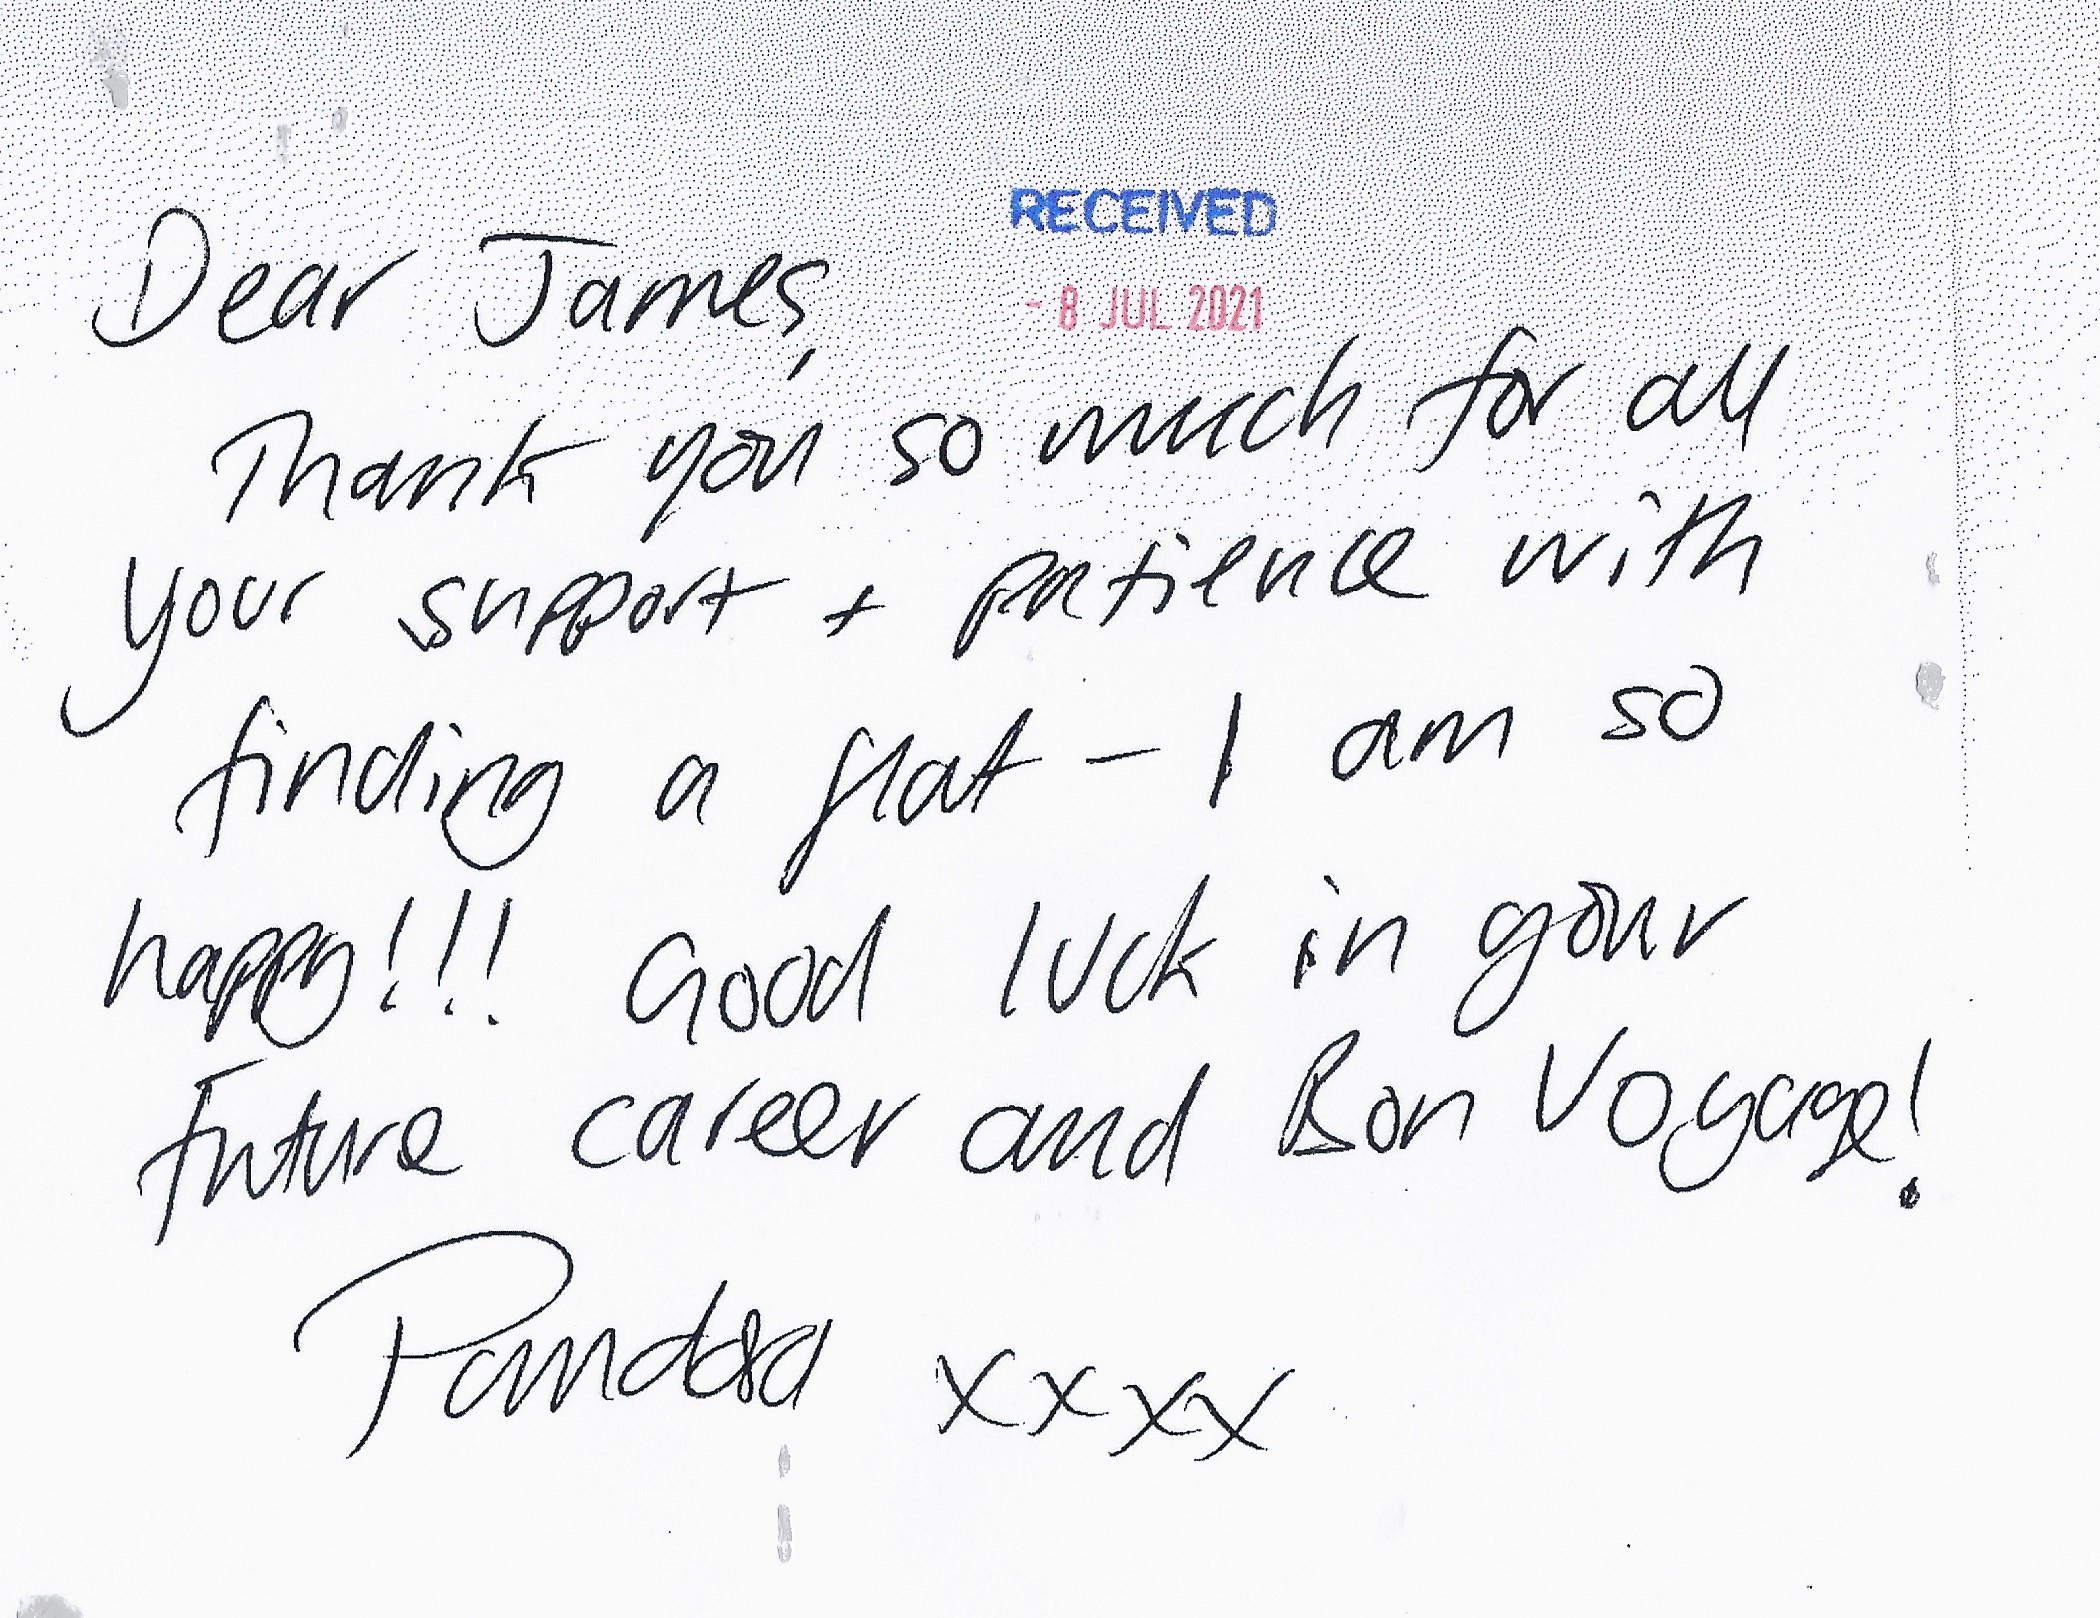 RECEIVED
- 8 JUL 2021
Dear James,
Thank you so much for all
your support + patience with
finding a flat - I am so
happy!!! Good luck in your
Future career and Bon Voyage!
Pandora xxxx